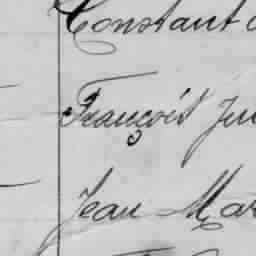 Constant
François
Jean Mar